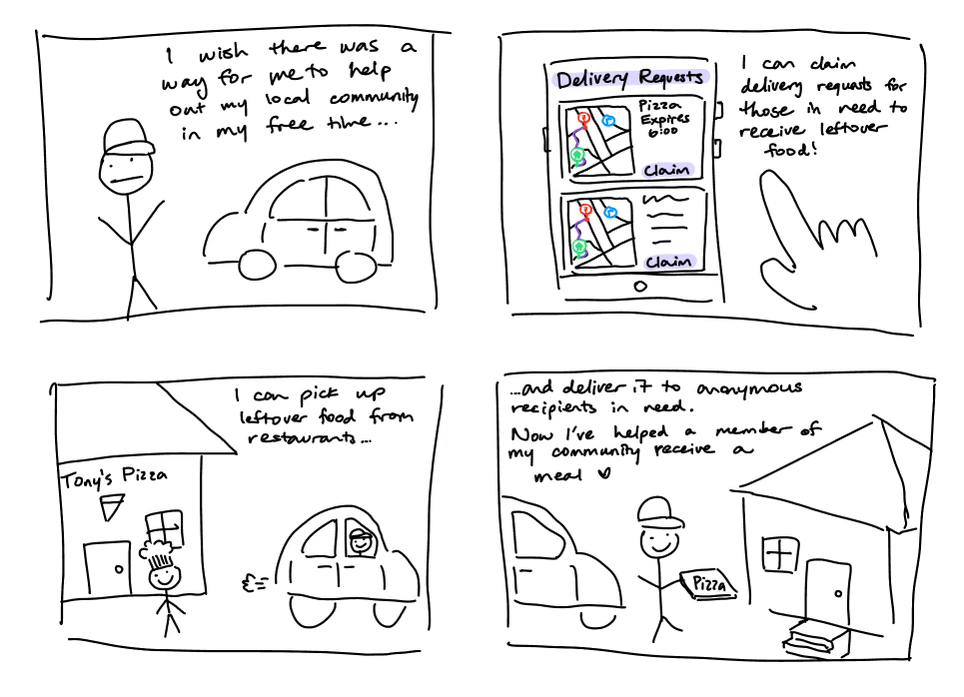 I wish there was a
way for me to help
out my local community
in my free time...
Delivery Requests
Pizza
Expires
6:00
Claim
Claim
I can claim
delivery requests for
those in need to
receive leftover
food!
I can pick up
leftover food from
restaurants...
Tony's Pizza
...and deliver it to anonymous
recipients in need.
Now I've helped a member of
my community receive a
meal
Pizza